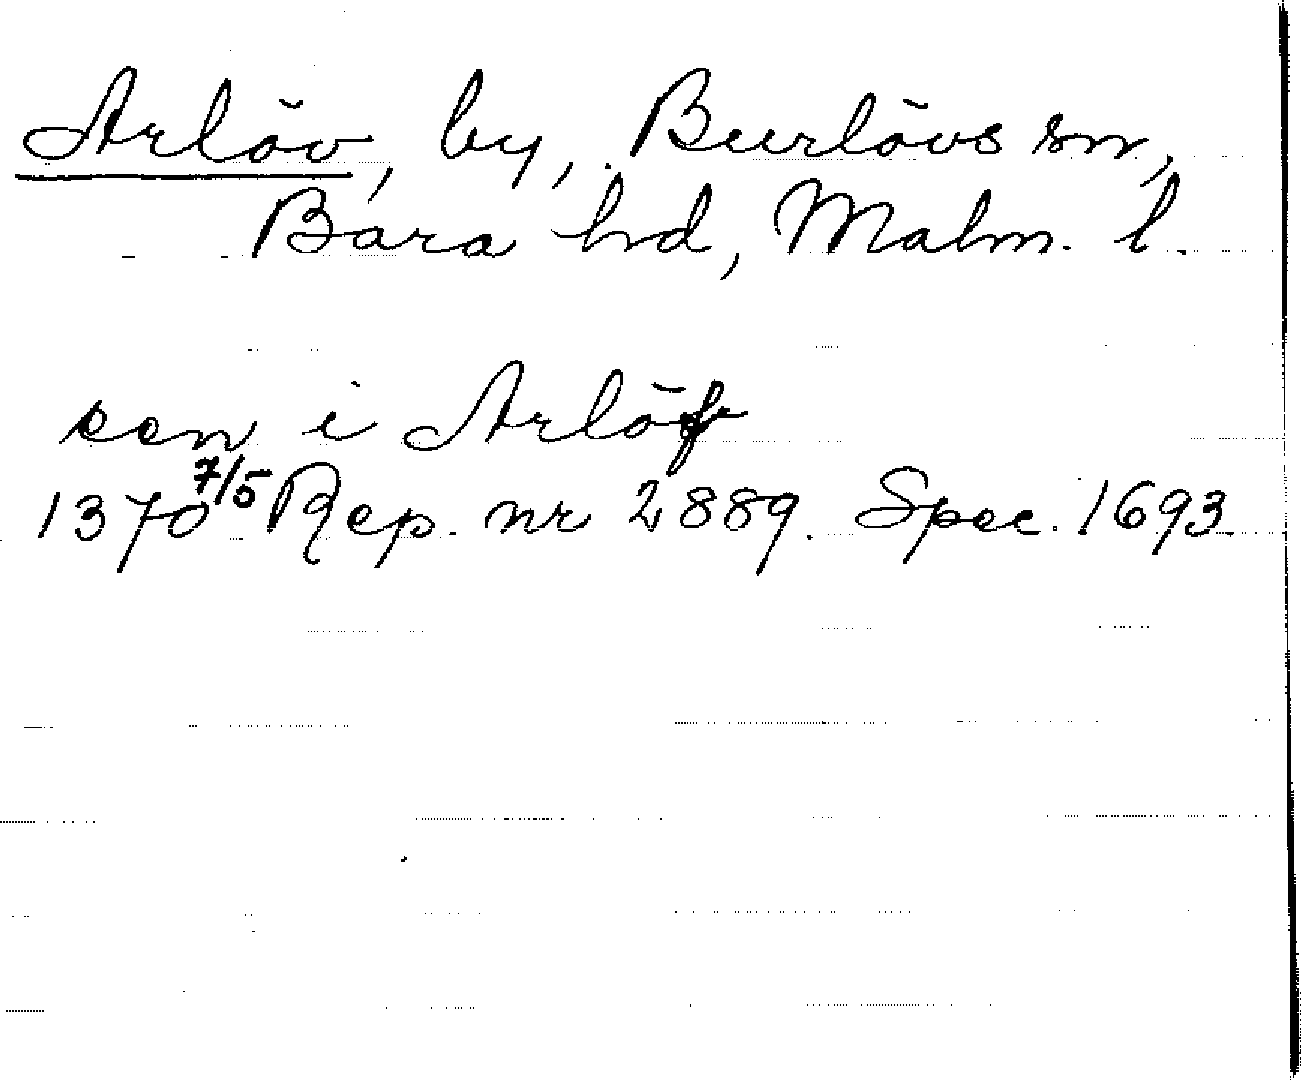 Arlöv, by, Burlövs sn,
Bara hd, Malm. l.
een i Arlöf
1370 7/5 Rep. nr 2889. Spec. 1693